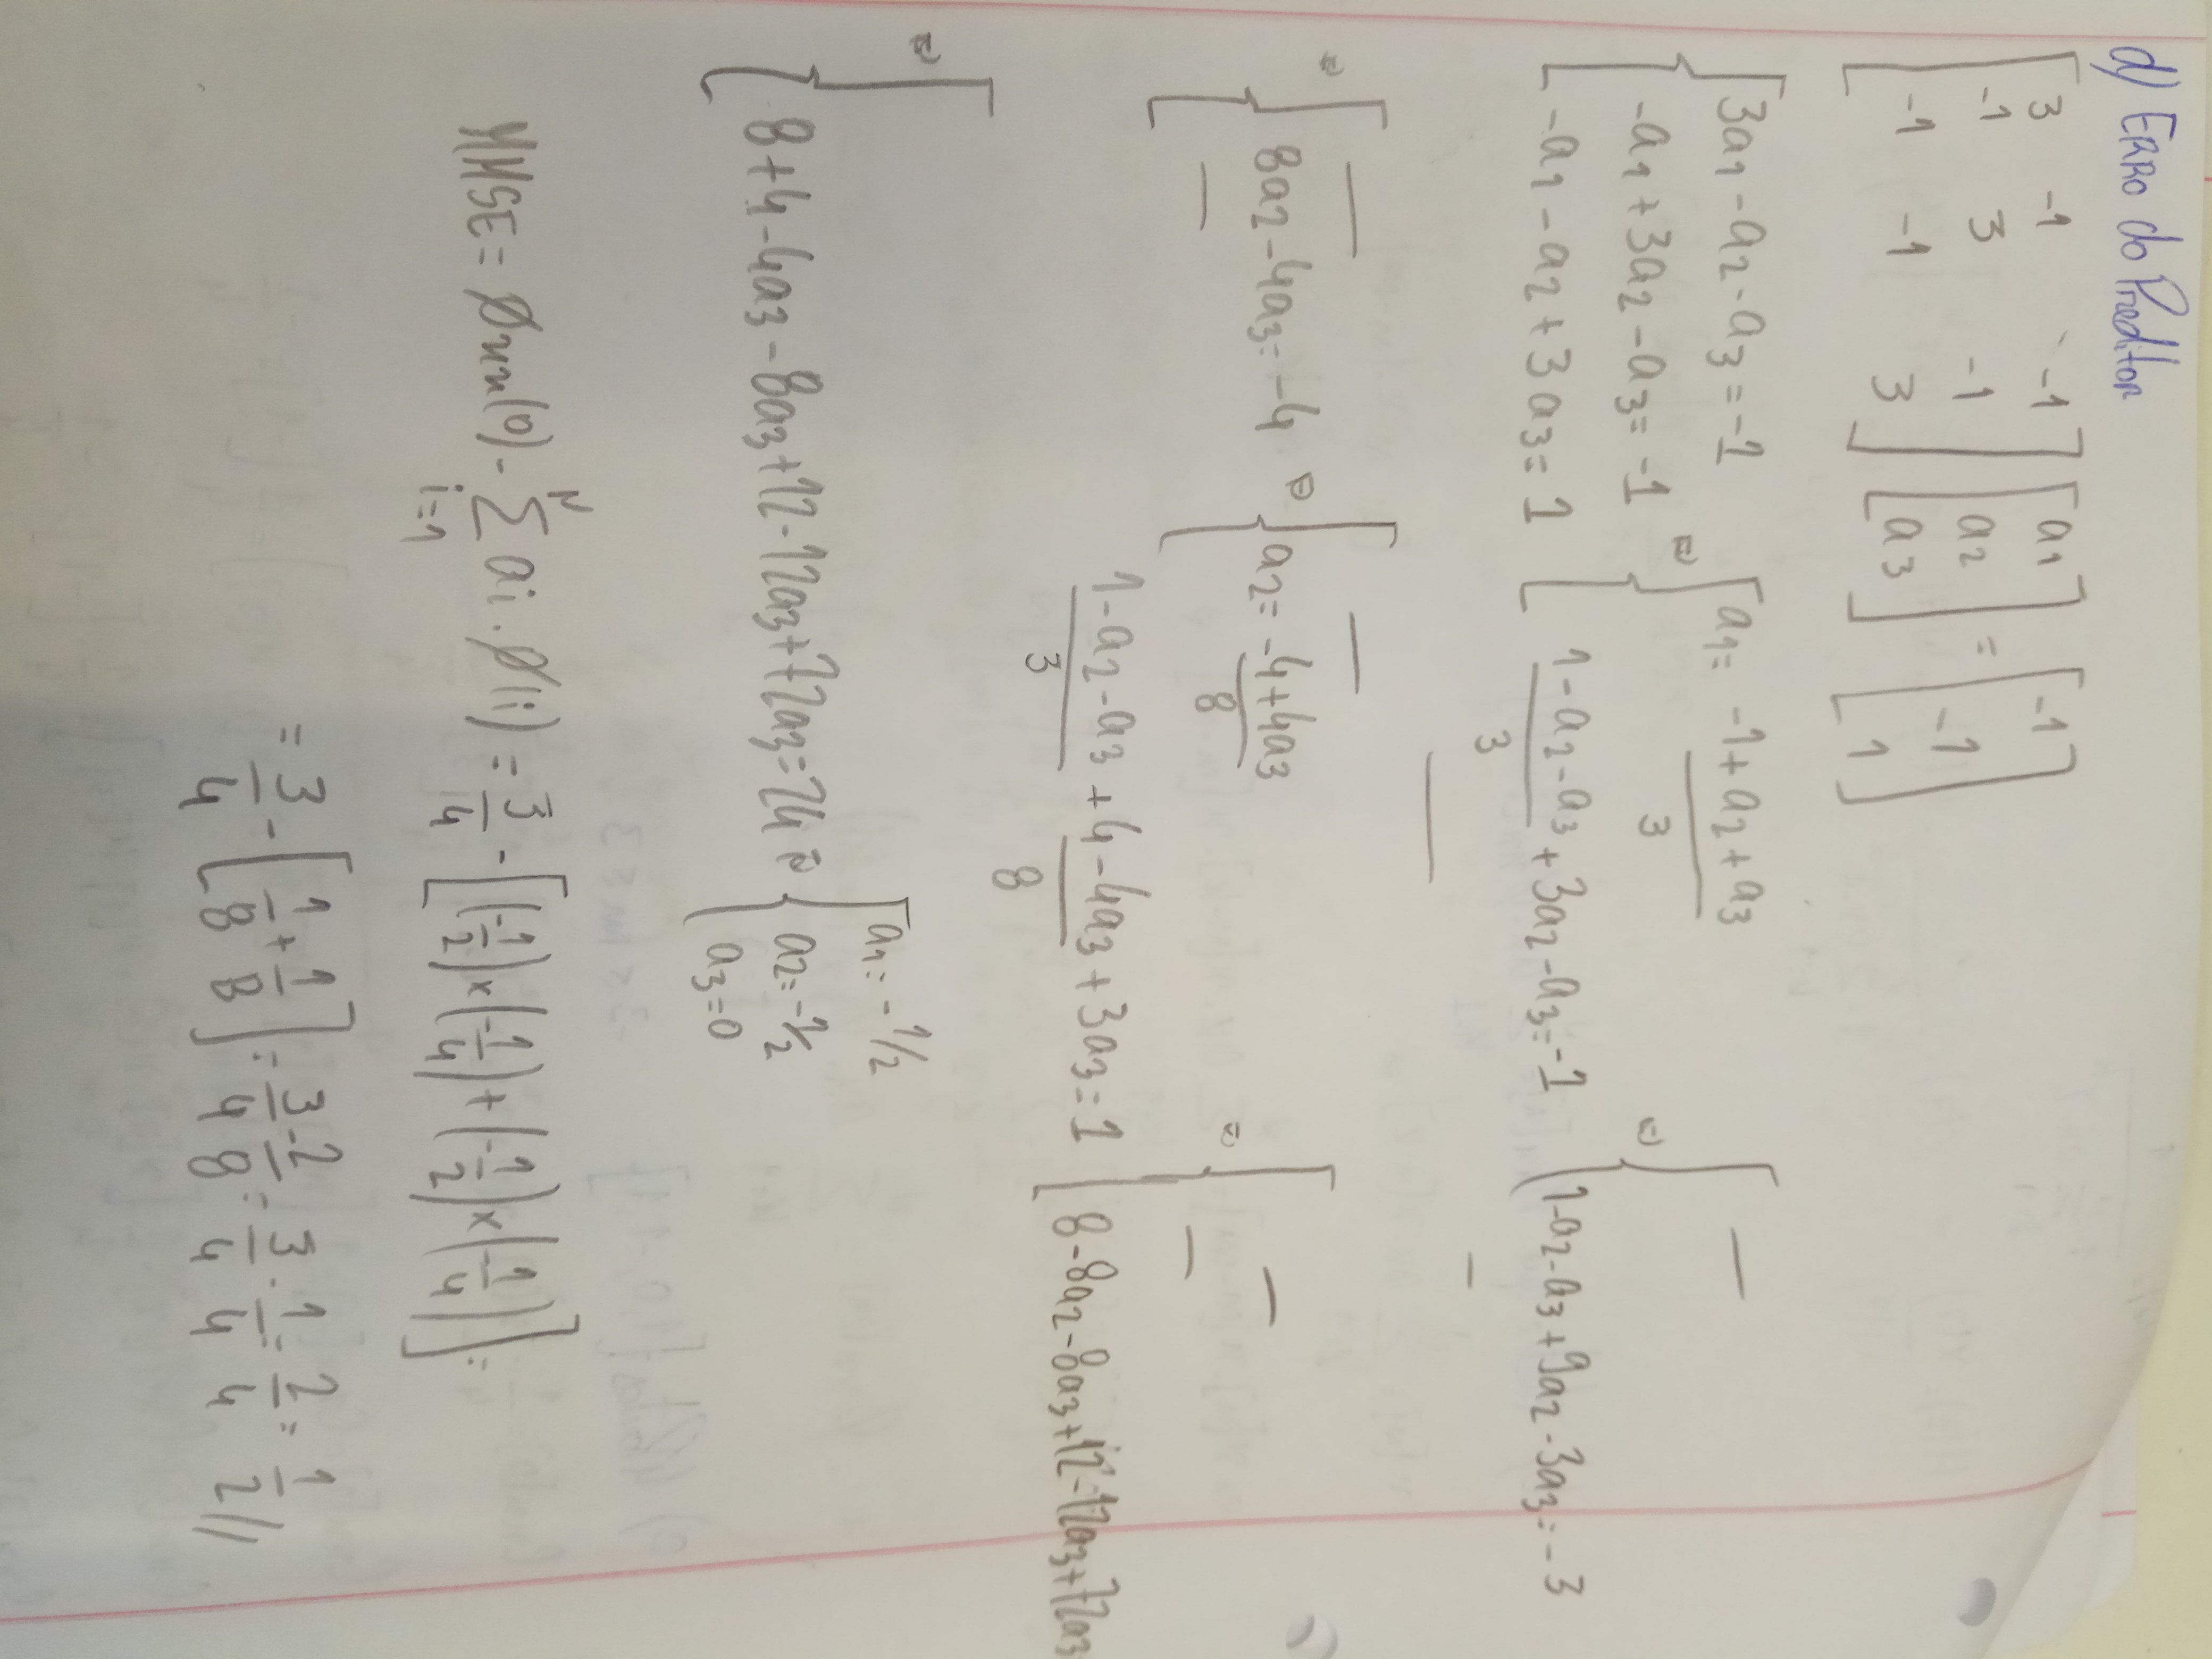 d) ERRO do Preditor
[3 -1 -1; -1 3 -1; -1 -1 3] [a1; a2; a3] = [-1; -1; 1]
{3a1 - a2 - a3 = -1; -a1 + 3a2 - a3 = -1; -a1 - a2 + 3a3 = 1} ⇔ {a1 = (-1 + a2 + a3)/3; (1 - a2 - a3)/3 + 3a2 - a3 = -1; —} ⇔ {—; 1 - a2 - a3 + 9a2 - 3a3 = -3; —}
⇔ {—; 8a2 - 4a3 = -4; —} ⇔ {—; a2 = (-4 + 4a3)/8; (1 - a2 - a3)/3 + (4 - 4a3)/8 + 3a3 = 1} ⇔ {—; —; 8 - 8a2 - 8a3 + 12 - 12a3 + 72a3
⇔ {8 + 4 - 4a3 - 8a3 + 12 - 12a3 + 72a3 = 24 ⇔ {a1 = -1/2; a2 = -1/2; a3 = 0
MMSE = Øxx(0) - Σ_{i=1}^{N} ai . Ø(i) = 3/4 - [(-1/2) × (-1/4) + (-1/2) × (-1/4)] =
= 3/4 - [1/8 + 1/8] = 3/4 - 2/8 = 3/4 - 1/4 = 2/4 = 1/2 //